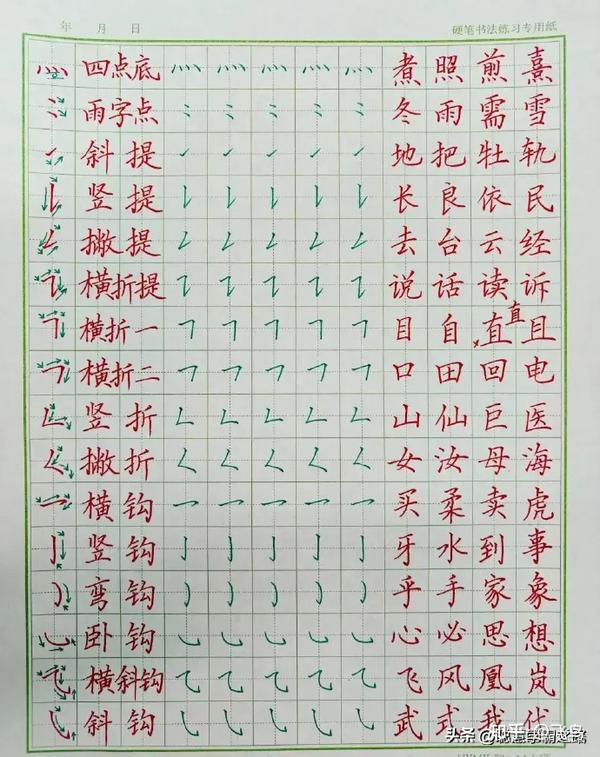 年 月 日 硬笔书法练习专用纸
四点底 煮 照 煎 熹
雨字点 冬 雨 需 雪
斜提 地 把 牡 轨
竖提 长 良 依 民
撇提 去 台 云 经
横折提 说 话 读 诉
横折一 目 自 直 直 且
横折二 口 田 回 电
竖折 山 仙 巨 医
撇折 女 汝 母 海
横钩 买 柔 卖 虎
竖钩 牙 水 到 事
弯钩 乎 手 家 象
卧钩 心 必 思 想
横斜钩 飞 风 凰 岚
斜钩 武 式 我 代
知乎
头条